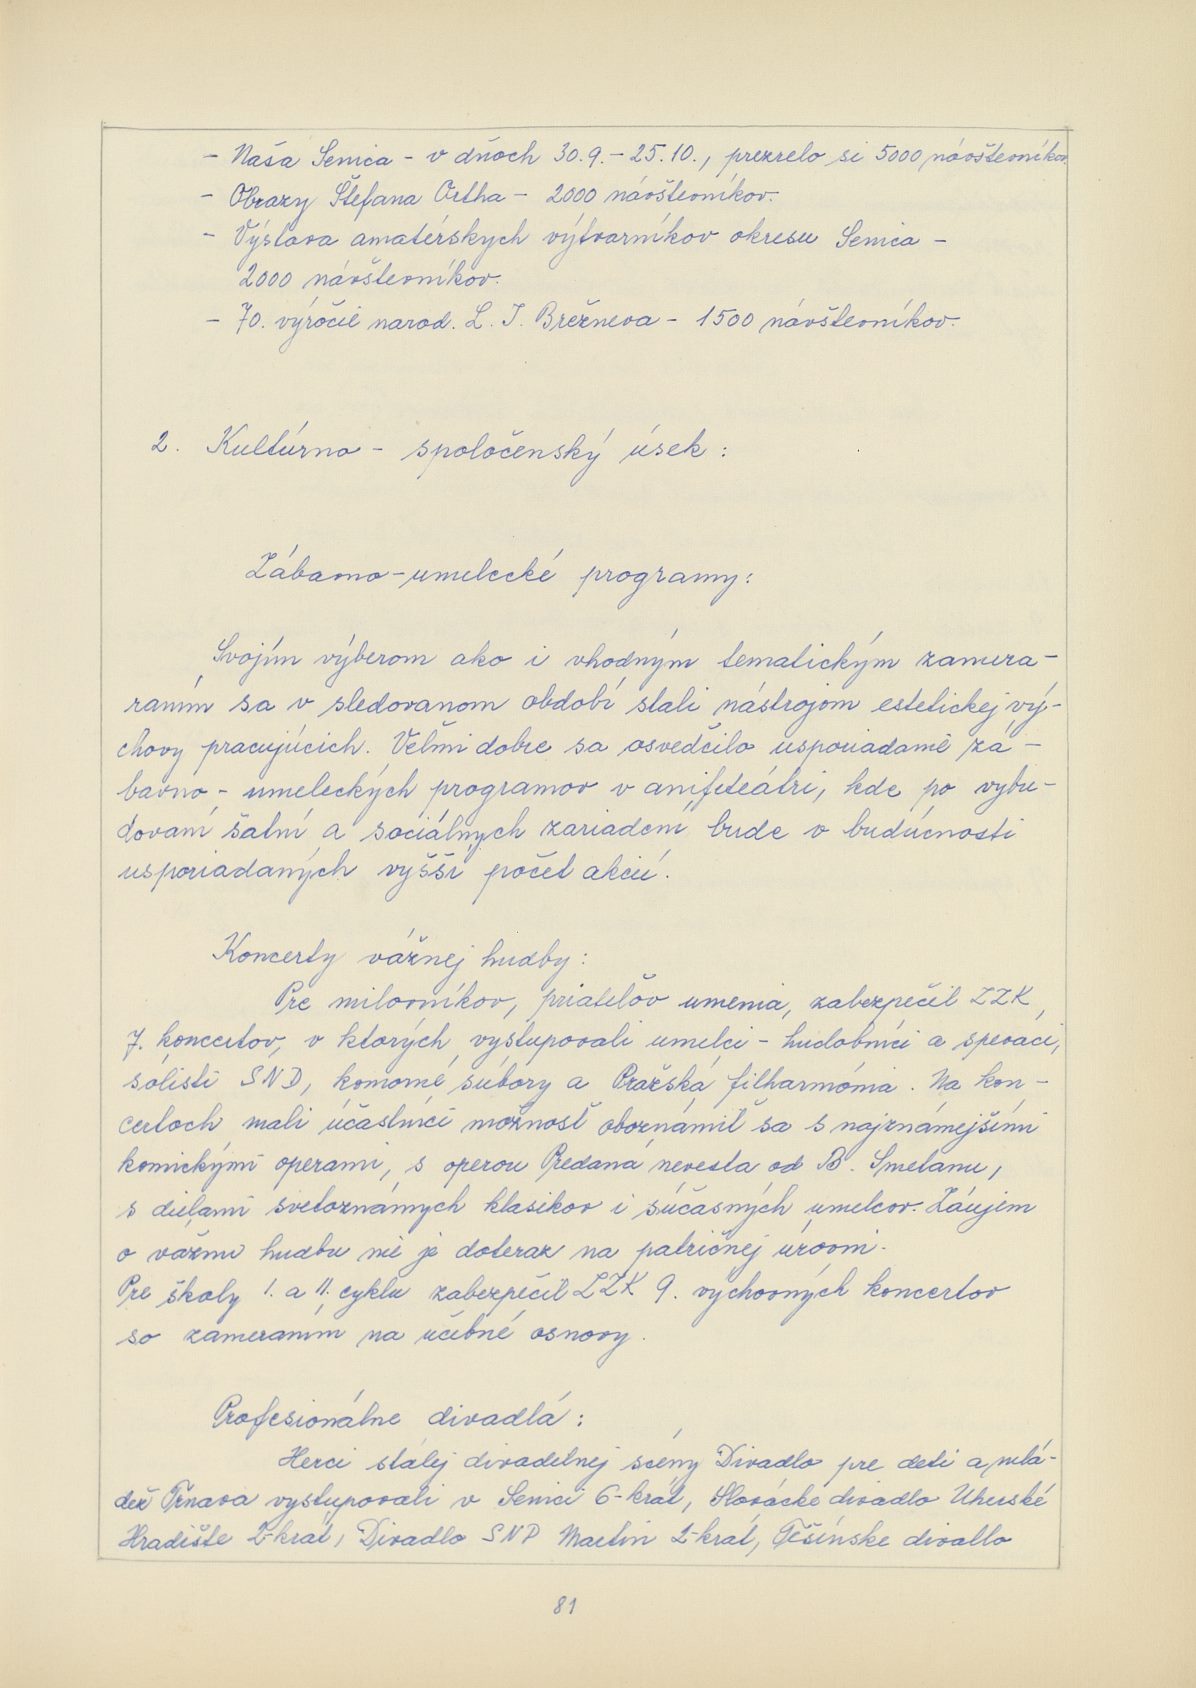 - Naša Senica - v dňoch 30.9. - 25.10., prezrelo si 5000 návštevníkov
- Obrazy Štefana Ortha - 2000 návštevníkov.
- Výstava amatérskych výtvarníkov okresu Senica -
2000 návštevníkov.
- 70. výročie narod. L. I. Brežneva - 1500 návštevníkov.
2. Kultúrno - spoločenský úsek :
Zábavno - umelecké programy :
Svojím výberom ako i vhodným tematickým zamera-
raním sa v sledovanom období stali nástrojom estetickej vý-
chovy pracujúcich. Veľmi dobre sa osvedčilo usporiadanie zá -
bavno - umeleckých programov v amfiteátri, kde po vybu-
dovaní šatní a sociálnych zariadení bude v budúcnosti
usporiadaných vyšší počet akcií.
Koncerty vážnej hudby :
Pre milovníkov, priateľov umenia, zabezpečil ZZK
7. koncertov, v ktorých vystupovali umelci - hudobníci a speváci,
sólisti SND, komorné súbory a Pražská filharmónia. Na kon -
certoch mali účastníci možnosť oboznámiť sa s najznámejšími
komickými operami, s operou Predaná nevesta od B. Smetanu,
s dielami svetoznámych klasikov i súčasných umelcov. Záujem
o vážnu hudbu nie je doteraz na patričnej úrovni.
Pre školy I. a II. cyklu zabezpečil ZZK 9. výchovných koncertov
so zameraním na učebné osnovy.
Profesionálne divadlá :
Herci stálej divadelnej scény Divadlo pre deti a mlá-
dež Trnava vystupovali v Senici 6-krát, Slovácké divadlo Uherské
Hradište 2-krát, Divadlo SNP Martin 2-krát, Těšínske divallo
81